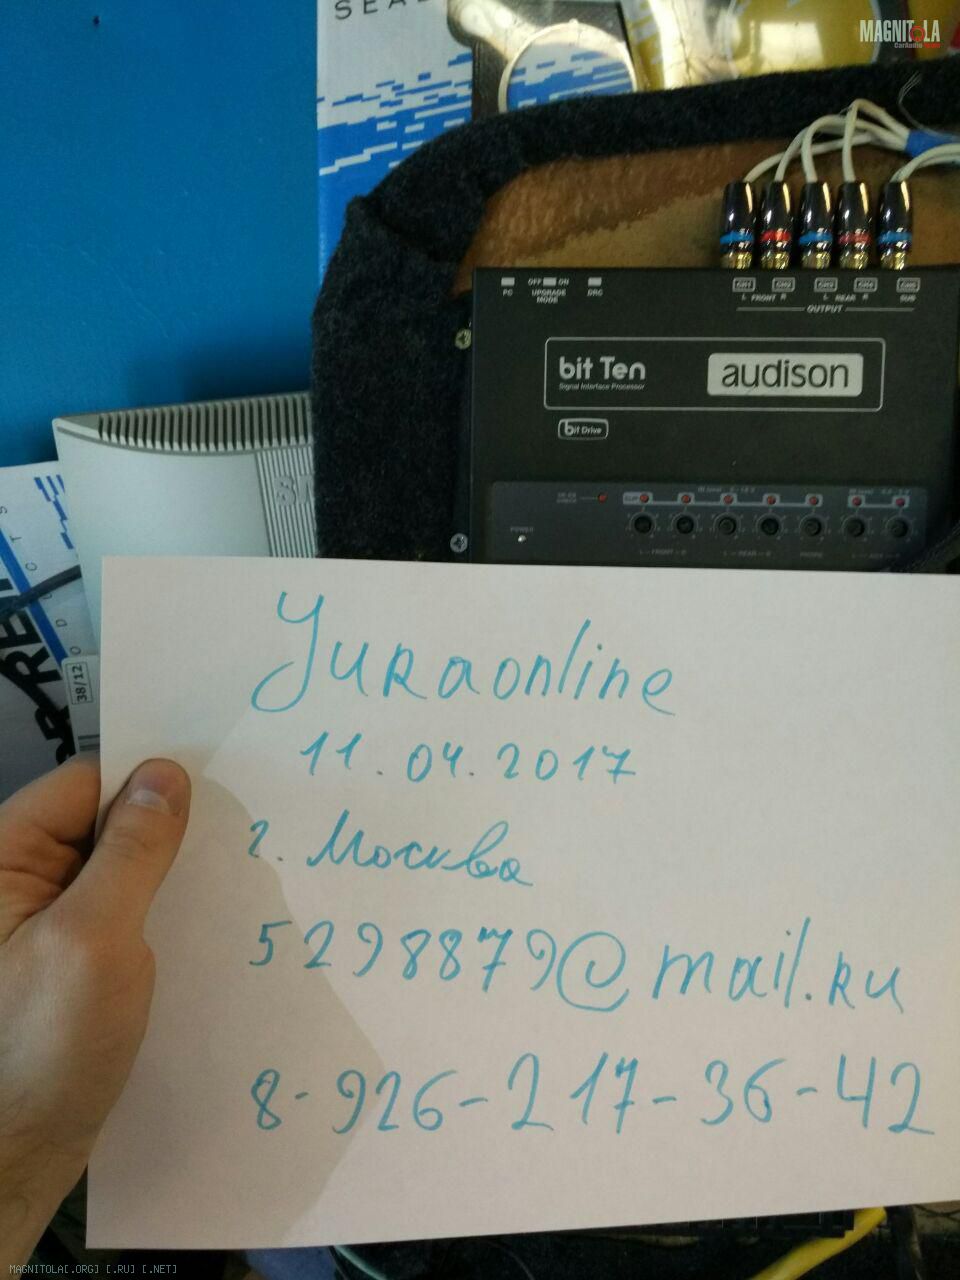 SEA
MAGNITOLA
CarAudio
PC
OFF ON
UPGRADE
MODE
DRC
CH1 CH2 CH3 CH4 CH5
L FRONT R L REAR R SUB
OUTPUT
bit Ten
Signal Interface Processor
audison
bit Drive
POWER
L FRONT R L REAR R PHONE L AUX R
38/12
Yuraonline
11.04.2017
г. Москва
5298879@mail.ru
8-926-217-36-42
MAGNITOLA[.ORG] [.RU] [.NET]